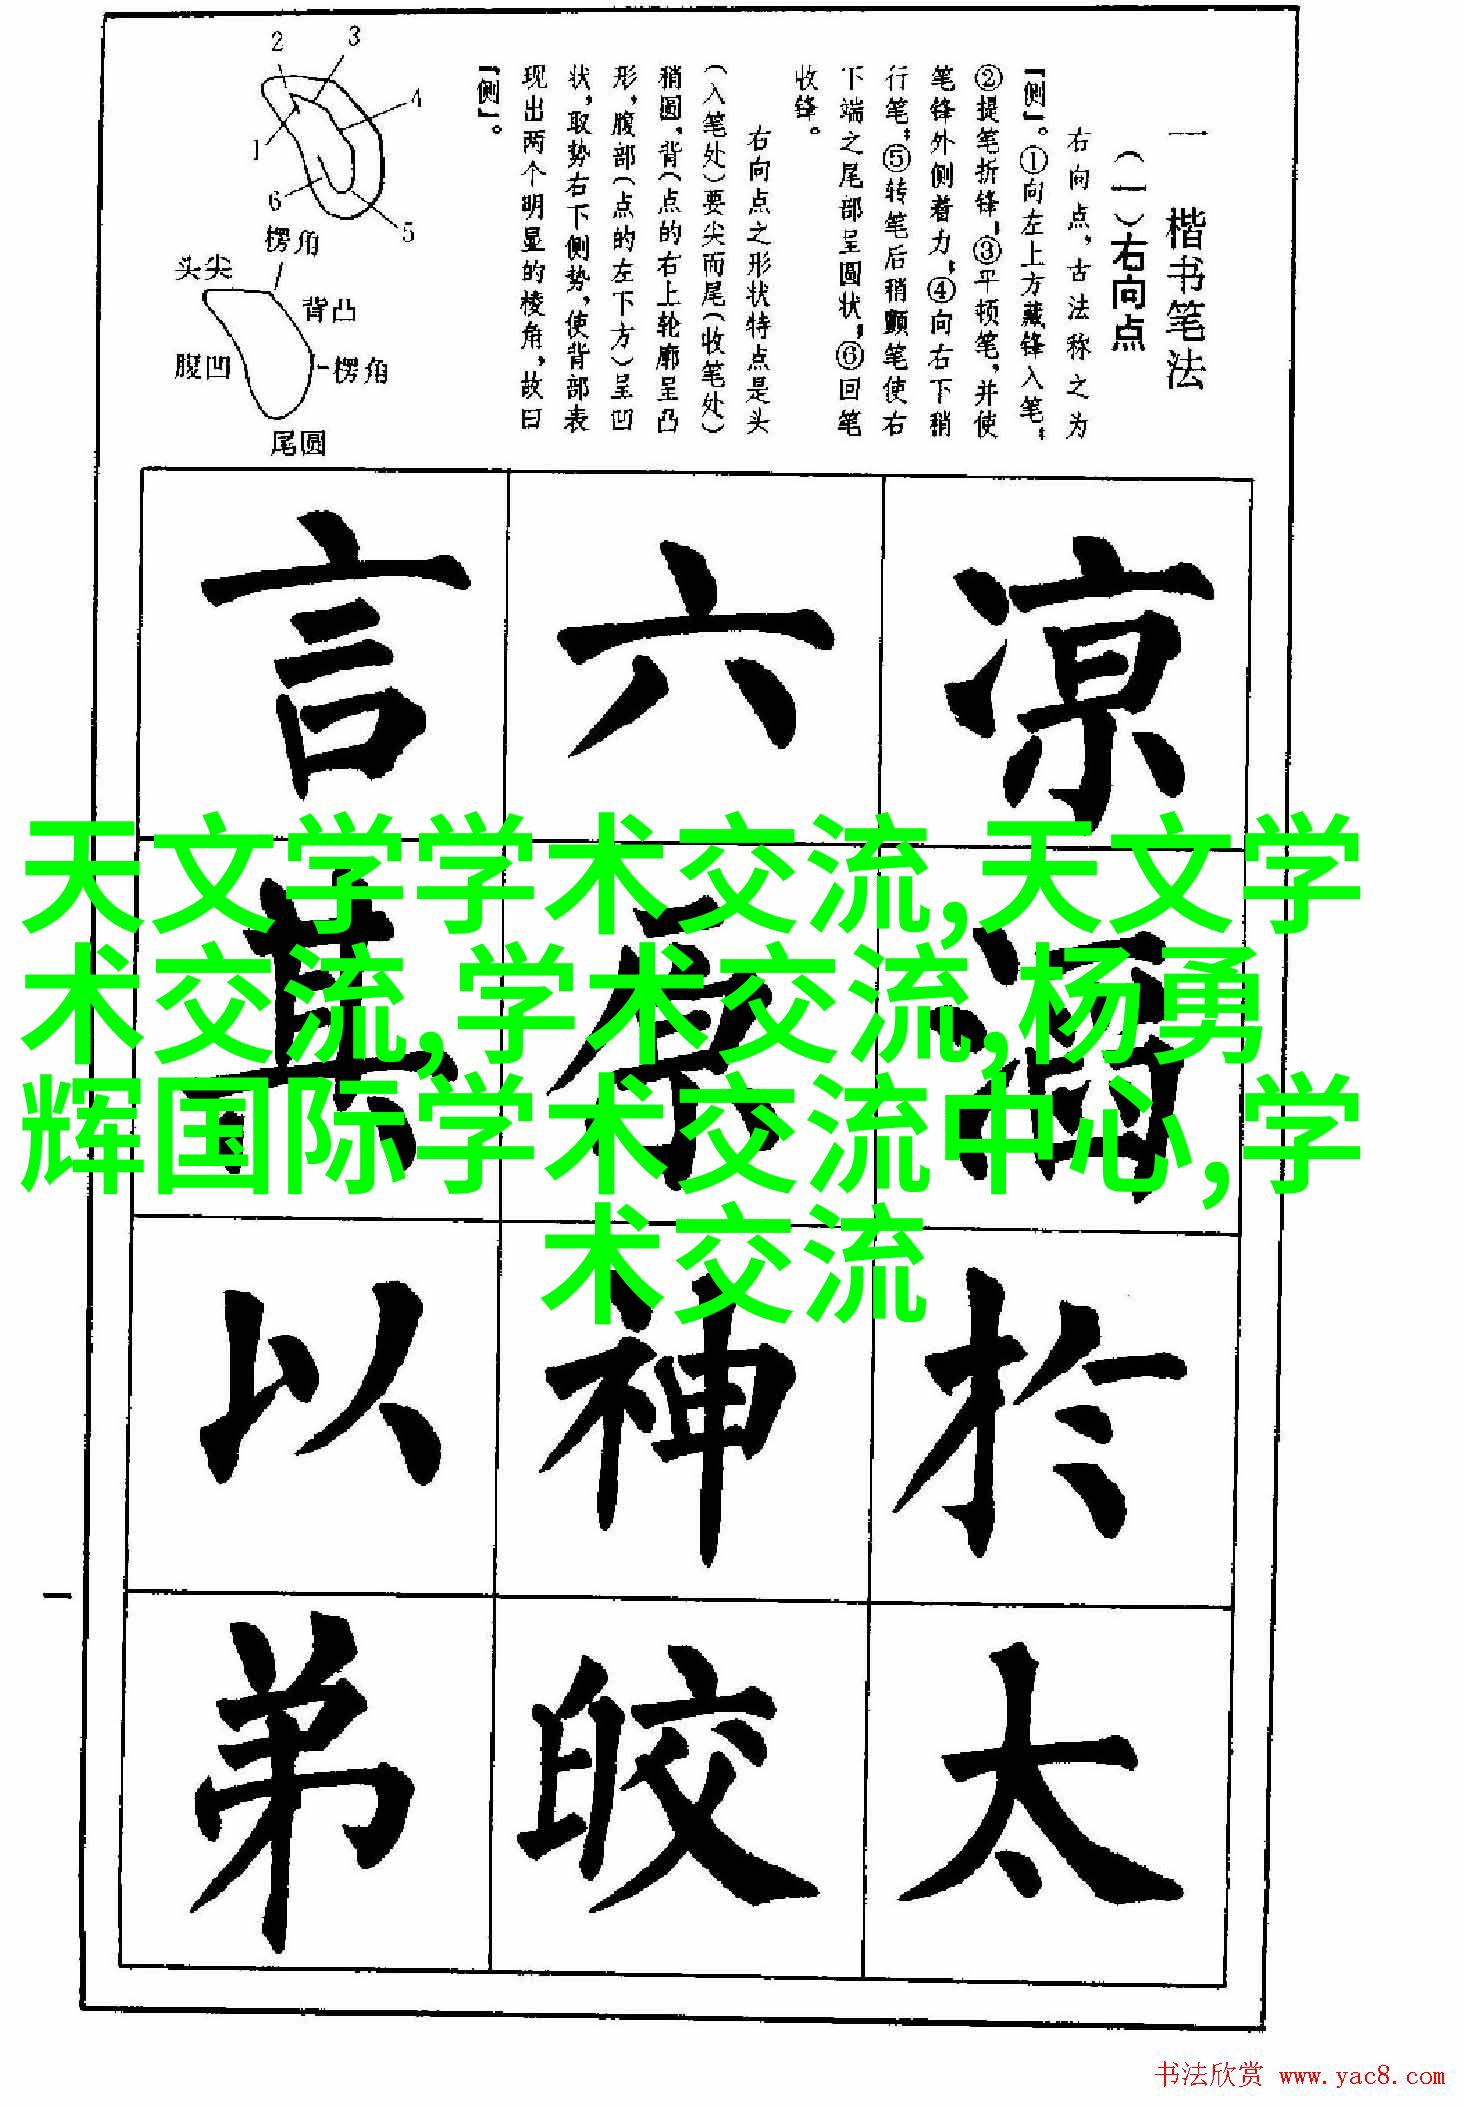 一 楷书笔法
(一)右向点
右向点，古法称之为
「侧」。①向左上方藏锋入笔；
②提笔折锋；③平顿笔，并使
笔锋外侧着力；④向右下稍
行笔；⑤转笔后稍颤笔使右
下端之尾部呈圆状；⑥回笔
收锋。
右向点之形状特点是头
(入笔处)要尖而尾(收笔处)
稍圆，背(点的右上轮廓呈凸
形，腹部(点的左下方)呈凹
状，取势右下侧势，使背部表
现出两个明显的棱角，故曰
「侧」。
2
3
4
1
6
5
楞角
头尖
背凸
腹凹
楞角
尾圆
凉 六 言
天文学学术交流,天文学
术交流,学术交流,杨勇
辉国际学术交流中心,学
术交流
於 神 以
太 皎 弟
一
书法欣赏 www.yac8.com